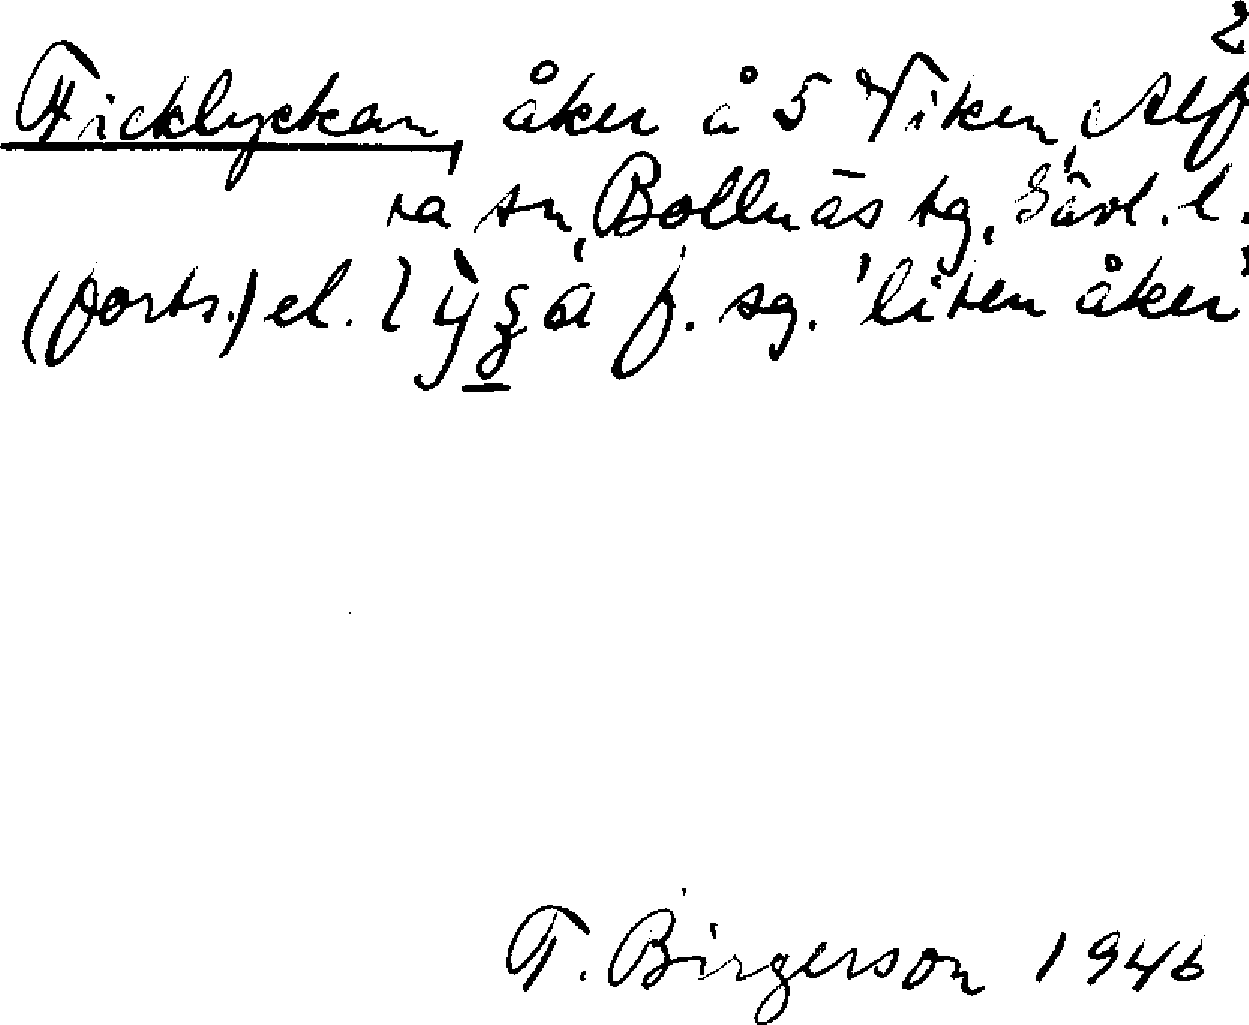 2
Ficklyckan, åker å 5 Viken, Alf
ta sn, Bollnäs tg, Gävl. l.
(forts.) el. f. sg. 'liten åker'
F. Birgerson 1946